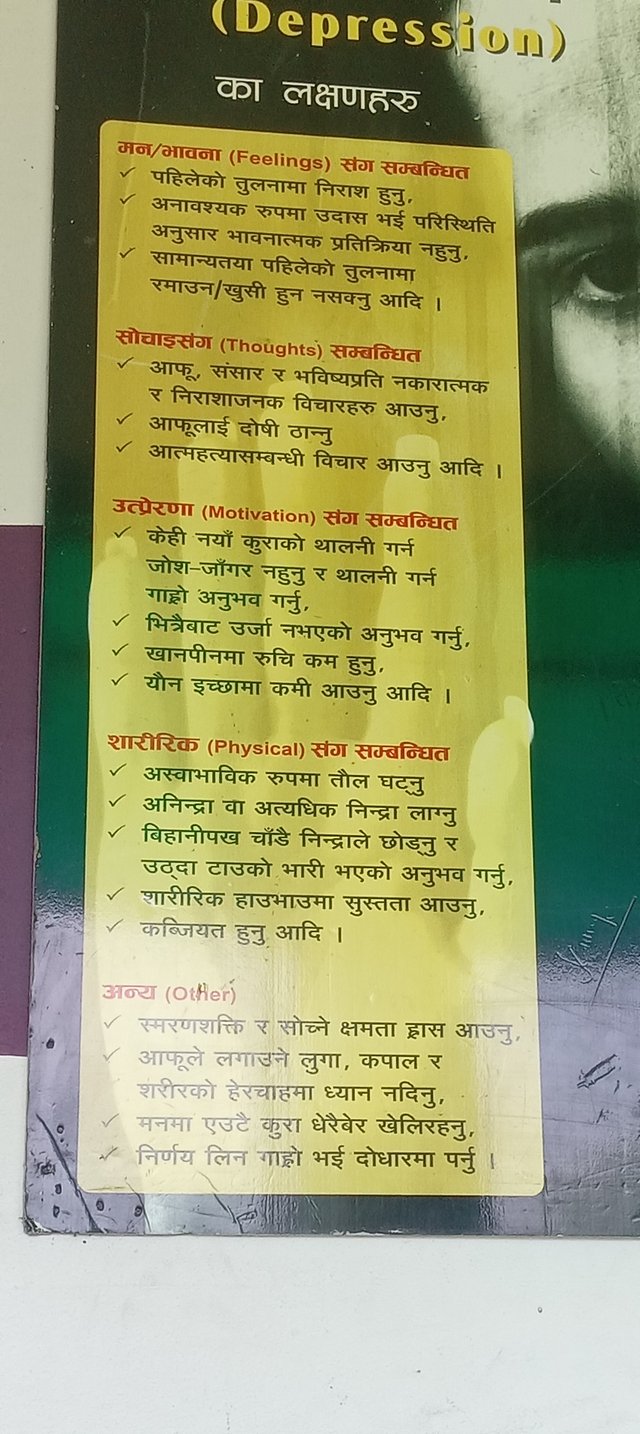 (Depression)
का लक्षणहरु
मन/भावना (Feelings) संग सम्बन्धित
✓ पहिलेको तुलनामा निराश हुनु,
✓ अनावश्यक रुपमा उदास भई परिस्थिति
अनुसार भावनात्मक प्रतिक्रिया नहुनु,
✓ सामान्यतया पहिलेको तुलनामा
रमाउन/खुसी हुन नसक्नु आदि ।
सोचाइसंग (Thoughts) सम्बन्धित
✓ आफू, संसार र भविष्यप्रति नकारात्मक
र निराशाजनक विचारहरु आउनु,
✓ आफूलाई दोषी ठान्नु
✓ आत्महत्यासम्बन्धी विचार आउनु आदि ।
उत्प्रेरणा (Motivation) संग सम्बन्धित
✓ केही नयाँ कुराको थालनी गर्न
जोश-जाँगर नहुनु र थालनी गर्न
गाह्रो अनुभव गर्नु,
✓ भित्रैबाट उर्जा नभएको अनुभव गर्नु,
✓ खानपीनमा रुचि कम हुनु,
✓ यौन इच्छामा कमी आउनु आदि ।
शारीरिक (Physical) संग सम्बन्धित
✓ अस्वाभाविक रुपमा तौल घट्नु
✓ अनिन्द्रा वा अत्यधिक निन्द्रा लाग्नु
✓ बिहानीपख चाँडै निन्द्राले छोड्नु र
उठ्दा टाउको भारी भएको अनुभव गर्नु,
✓ शारीरिक हाउभाउमा सुस्तता आउनु,
✓ कब्जियत हुनु आदि ।
अन्य (Other)
✓ स्मरणशक्ति र सोच्ने क्षमता ह्रास आउनु,
✓ आफूले लगाउने लुगा, कपाल र
शरीरको हेरचाहमा ध्यान नदिनु,
✓ मनमा एउटै कुरा धेरैबेर खेलिरहनु,
✓ निर्णय लिन गाह्रो भई दोधारमा पर्नु ।